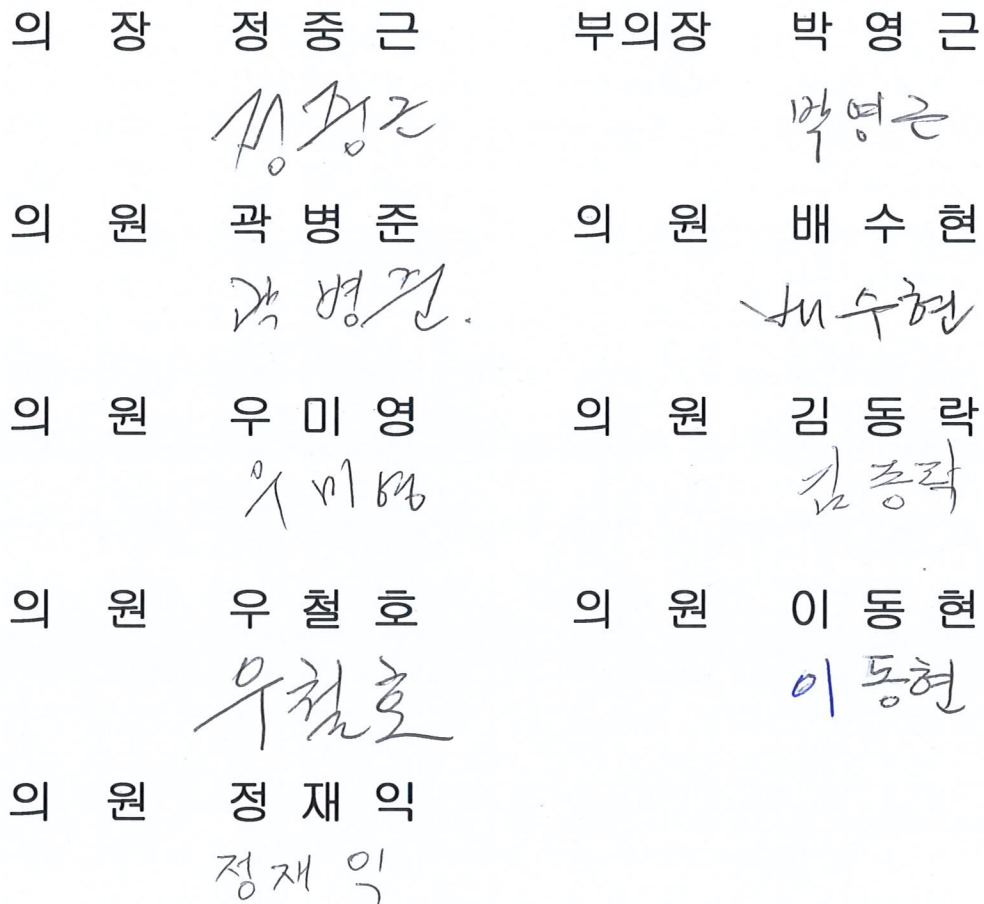 의 장 정 중 근 부의장 박 영 근
정중근 박영근
의 원 곽 병 준 의 원 배 수 현
곽병준. 배수현
의 원 우 미 영 의 원 김 동 락
우미영 김동락
의 원 우 철 호 의 원 이 동 현
우철호 이동현
의 원 정 재 익
정재익